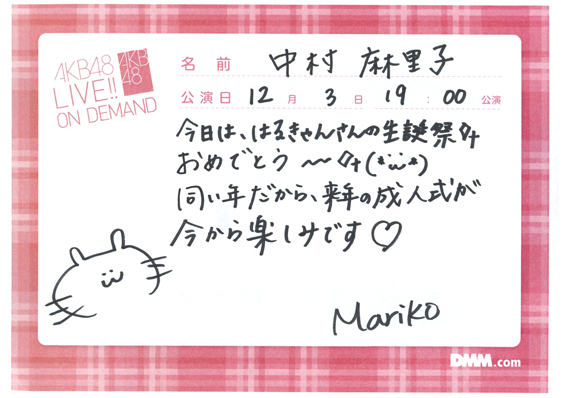 AKB48
LIVE!!
ON DEMAND
AKB
48
名前 中村 麻里子
公演日 12月 3日 19:00 公演
今日は、はるきゃんさんの生誕祭
おめでとう〜(*¨*)
同い年だから、来年の成人式が
今から楽しみです♡
Mariko
DMM.com